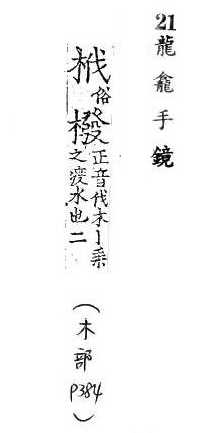 21龍龕手鏡
栰俗橃正音伐木丨乘之渡水也二
(木部P384)